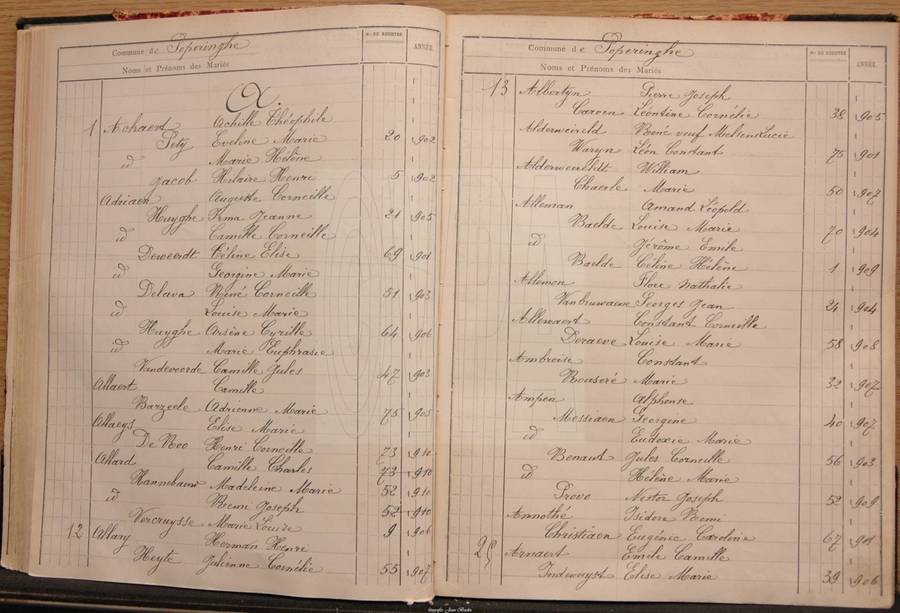 Commune de Poperinghe
No DU REGISTRE
ANNÉE
Noms et Prénoms des Mariés
A.
1 Achaert Achille Théophile
Pety Eveline Marie 20 1902
id Marie Hélène
Jacob Hilaire Henri 5 1902
Adriaen Auguste Corneille
Huyghe Irma Jeanne 21 1905
id Camille Corneille
Deweerdt Céline Elise 69 1901
id Georgine Marie
Delava Réné Corneille 51 1903
id Louise Marie
Huyghe Arsène Cyrille 64 1906
id Marie Euphrasie
Vandevoorde Camille Jules 47 1903
Allaert Camille
Barzeele Adrienne Marie 75 1905
Allaeys Elise Marie
De Roo Henri Corneille 73 1910
Allard Camille Charles 73 1910
Hannebauw Madeleine Marie 52 1910
id Remi Joseph 52 1910
Vercruysse Marie Louise 9 1906
12 Allary Herman Henri
Heyte Julienne Cornélie 55 1907
Commune de Poperinghe
No DU REGISTRE
ANNÉE
Noms et Prénoms des Mariés
13 Albertyn Pierre Joseph
Caroen Léontine Cornélie 38 1905
Alderweireld Réné veuf Melsen Lucie
Waryn Léon Constant 75 1901
Alderweireldt William
Chaerle Marie 50 1907
Alleman Amand Léopold
Baelde Louise Marie 70 1904
id Jérôme Emile
Baelde Céline Hélène 1 1909
Allemon Flore Nathalie
Vanbruwaene Georges Jean 24 1904
Allewaert Constant Corneille
Deraeve Louise Marie 58 1908
Ambroise Constant
Rouseré Marie 32 1907
Ampen Alphonse
Messiaen Georgine 40 1907
id Eudoxie Marie
Benaut Jules Corneille 56 1903
id Hélène Marie
Provo Nestor Joseph 52 1909
Annothé Isidore Remi
Christiaen Eugénie Caroline 67 1901
25 Arnaert Emile Camille
Indeweyst Elise Marie 39 1906